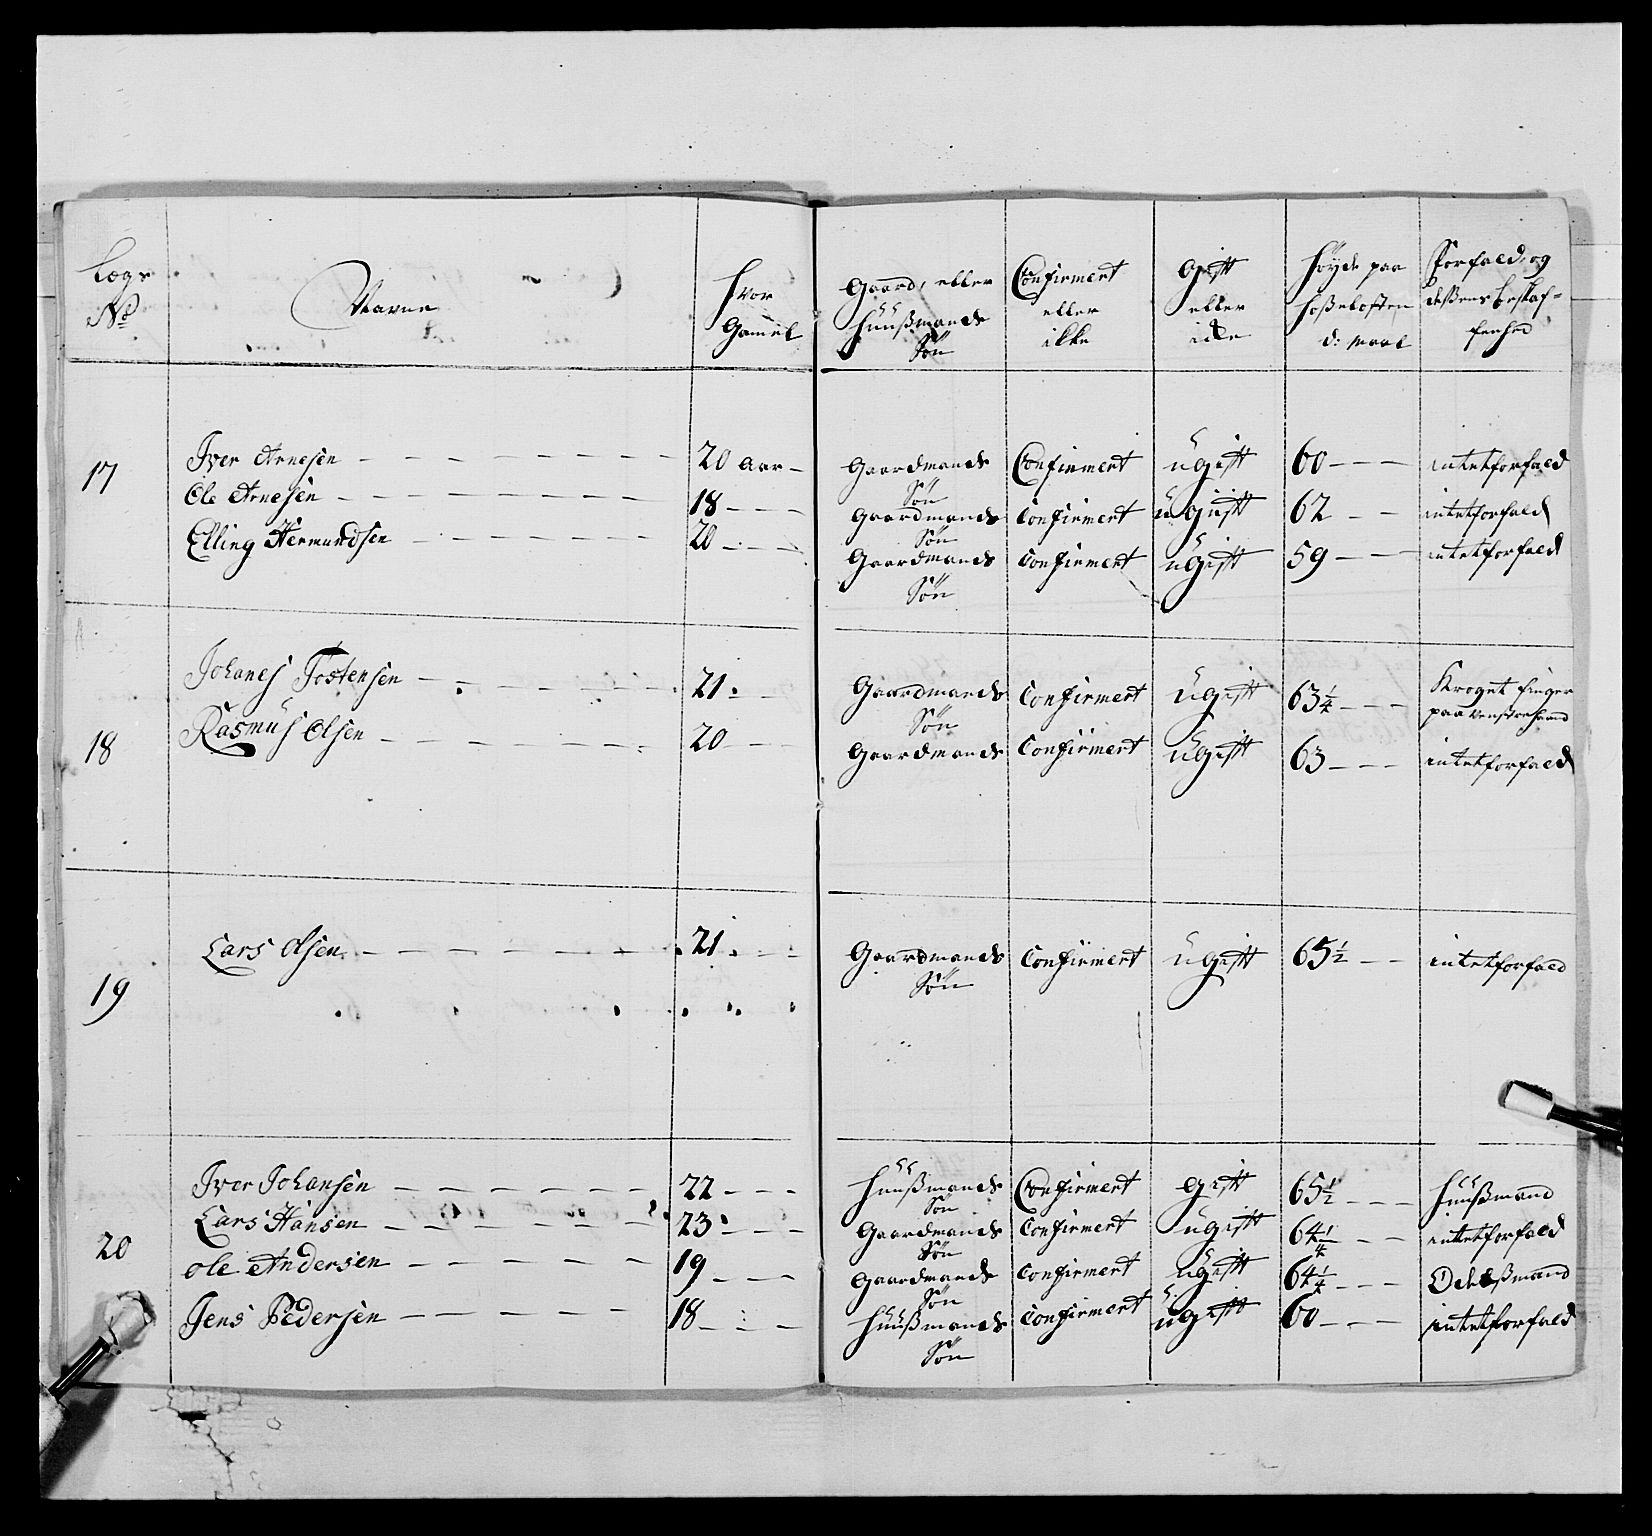 Lægs No | Navne | Hvor Gamel | Gaard, eller Huusmands Søn | Confirmert eller ikke | Gift eller icke | Høyde paa Hoseloften d: Maal | Forfald, og deßens beskaffenhed
17 | Iver Arnesen | 20 aar | Gaardmands Søn | Confirmert | ugift | 60 | intet forfald
Ole Arnesen | 18 | Gaardmands Søn | Confirmert | ugiift | 62 | intet forfald
Elling Hermundsen | 20 | Gaardmands Søn | Confirmert | ugift | 59 | intet forfald
18 | Johanes Tostensen | 21 | Gaardmands Søn | Confirmert | ugift | 63 1/4 | Kroget finger paa venstre haand
Rasmus Olsen | 20 | Gaardmands | Confirmert | ugift | 63 | intet forfald
19 | Lars Olsen | 21 | Gaardmands Søn | Confirmert | ugift | 65 1/2 | intet forfald
20 | Iver Johansen | 22 | Huußmands Søn | Confirmert | gift | 65 1/2 | Huußmand
Lars Hansen | 23 | Gaardmands Søn | Confirmert | ugift | 64 1/4 | intet forfald
Ole Andersen | 19 | Gaardmands Søn | Confirmert | ugift | 64 1/4 | Odelßmand
Jens Pedersen | 18 | Huußmands Søn | Confirmert | ugift | 60 | intet forfald